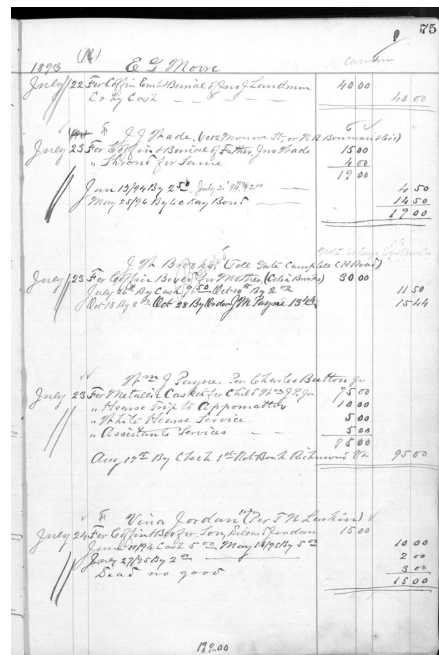 75
1893 E G Moore
July 22 For Coffin & Burial of Jno J Landrum 40 00
Cr By Cash 40 00
J J Thade
July 23 For Coffin & Burial of Father, Jno Thade 15 00
" Shroud for Same 4 00
19 00
Jan 13/94 By 2 50 July 2 94 2 00 4 50
May 25/96 By 60 Day Bond 14 50
19 00
J W Brooks (Toll Gate Campbell C H Road)
July 23 For Coffin Box for Mother (Celia Brooks) 30 00
July 26 By Cash 9 50 Oct By 2 00 11 50
Oct 13 By 2 00 Oct 28 By Order J M Payne 13 44 15 44
Wm J Payne Per Charles Button Jr
July 23 For Metallic Casket for Child Wm J P Jr 75 00
" Hearse Trip to Appomattox 10 00
" White Hearse Service 5 00
" Assistants Services 5 00
95 00
Aug 17th By Check 1st Nat Bank Richmond Va 95 00
Vina Jordan (Per T N Larkin)
July 24 For Coffin & Box for Son, Jordan 15 00
June 11/94 Cash 5 00 May 18/95 By 5 00 10 00
July 27/95 By 2 00 2 00
Dead no good 3 00
15 00
199.00